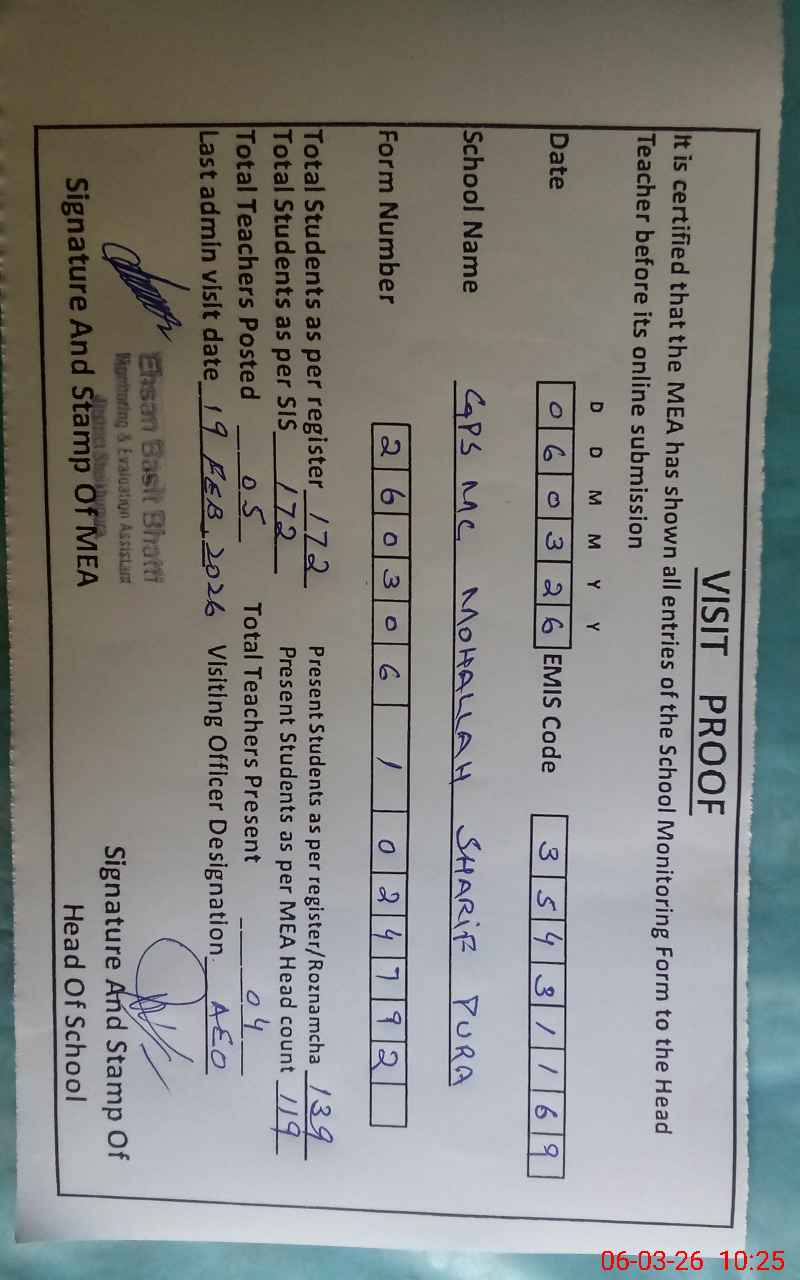 VISIT PROOF
It is certified that the MEA has shown all entries of the School Monitoring Form to the Head
Teacher before its online submission
D D M M Y Y
Date 0 6 0 3 2 6 EMIS Code 3 5 4 3 1 1 6 9
School Name GPS MC MOHALLAH SHARIF PURA
Form Number 2 6 0 3 0 6 1 0 2 4 7 9 2
Total Students as per register 172 Present Students as per register/Roznamcha 139
Total Students as per SIS 172 Present Students as per MEA Head count 119
Total Teachers Posted 05 Total Teachers Present 04
Last admin visit date 19 FEB, 2026 Visiting Officer Designation AEO
Ehsan Basit Bhatti
Monitoring & Evaluation Assistant
Signature And Stamp Of MEA
Signature And Stamp Of
Head Of School
06-03-26 10:25